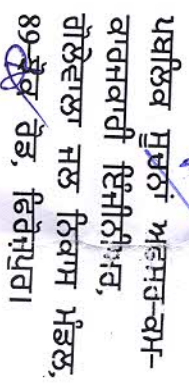 ਪਬਲਿਕ ਸੂਚਨਾਂ ਅਫਸਰ-ਕਮ-
ਕਾਰਜਕਾਰੀ ਇੰਜੀਨੀਅਰ,
ਗੋਲੇਵਾਲਾ ਜਲ ਨਿਕਾਸ ਮੰਡਲ,
89-ਕੈਂਟ ਰੋਡ, ਫਿਰੋਜ਼ਪੁਰ।